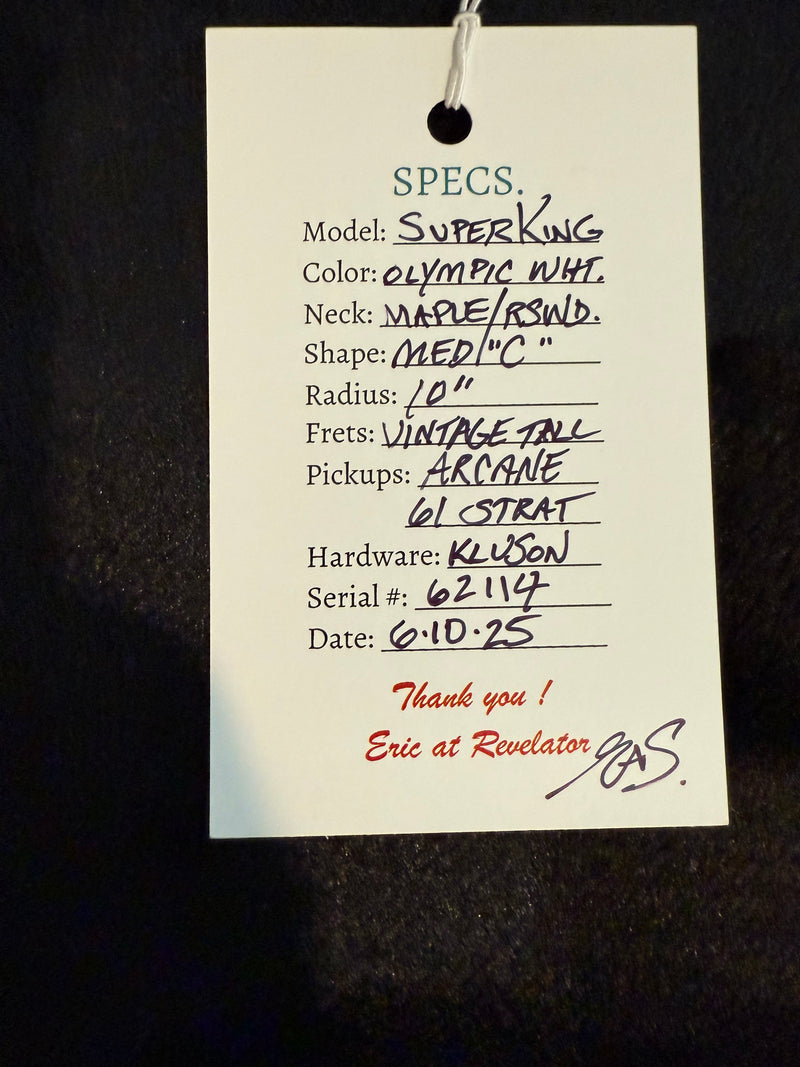 SPECS.
Model: SUPERKING
Color: OLYMPIC WHT.
Neck: MAPLE/RSWD.
Shape: MED/"C"
Radius: 10"
Frets: VINTAGE TALL
Pickups: ARCANE
61 STRAT
Hardware: KLUSON
Serial #: 62114
Date: 6·10·25
Thank you !
Eric at Revelator